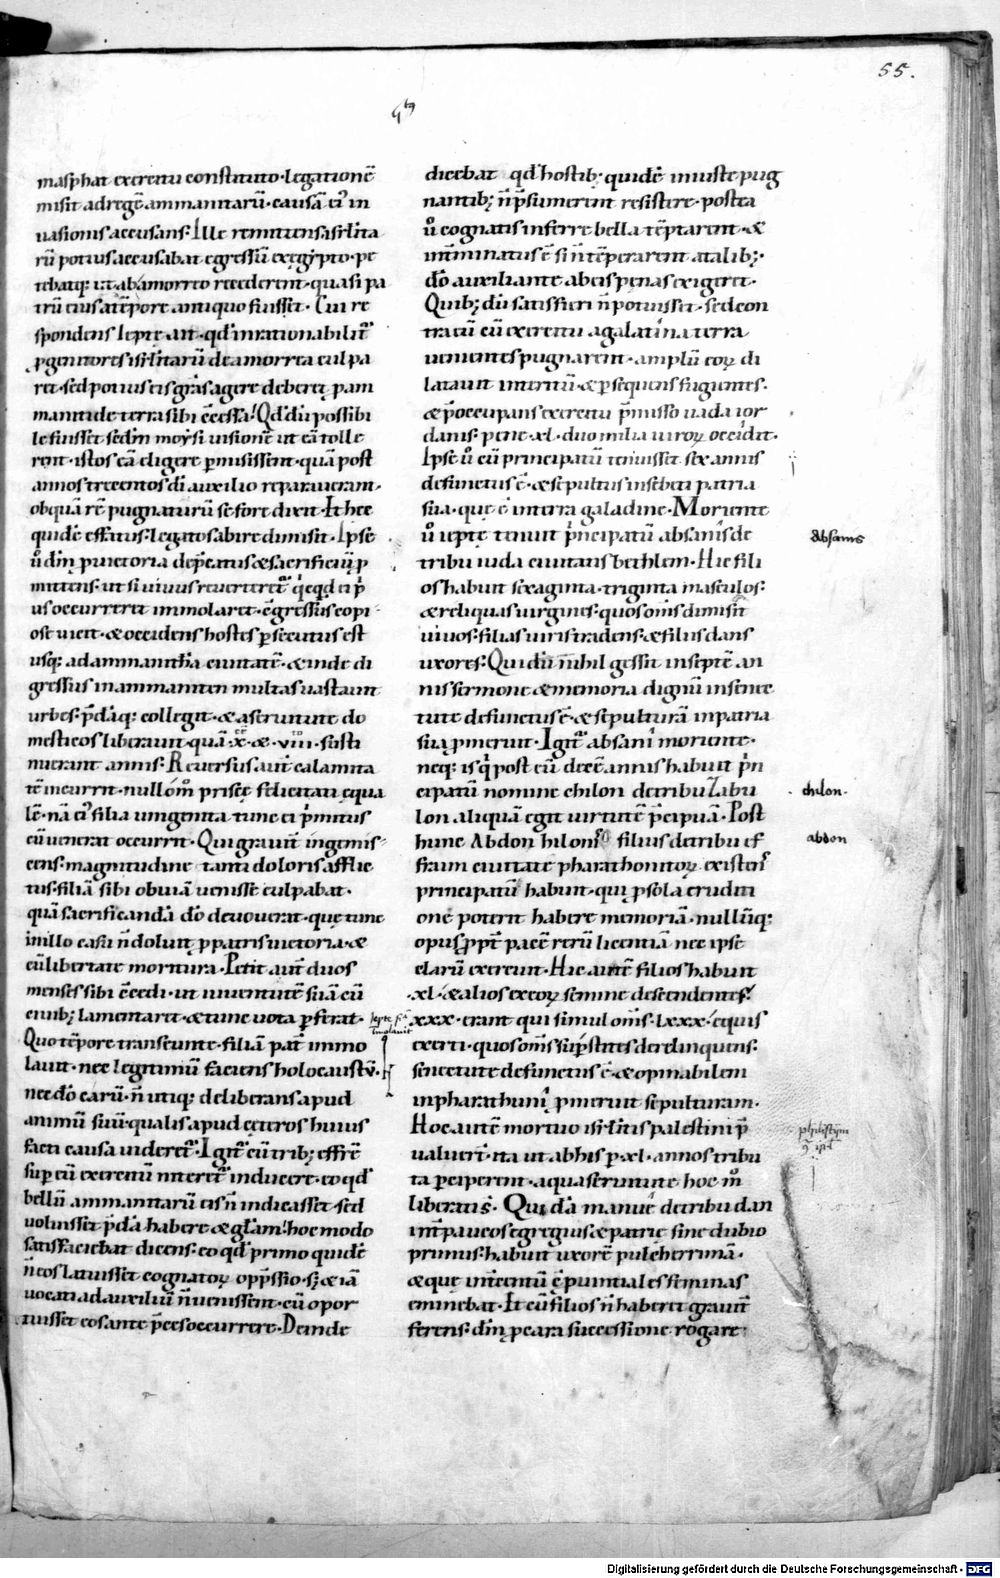 55.
masphat exercitu constituto· legationē
misit ad regē ammanitarū· causā ei' in
uasionis accusans· Ille remittens isrł'ita
rū potius accusabat egressū ex egypto· pe
tebatq; ut ab amorreo recederent· quasi pa
trū eius a tēpore antiquo fuisset· Cui re
spondens Iepte ait· qđ inrationabilit'
pgenitores isrł'itarū de amorrea culpa
ret· sed potius eis grās agere deberet· p am
manitide terra sibi c̄cessa· Qđ dū possibi
le fuisset sed dm̄ moysi uisionē ut eā tolle
rent· istos eā eligere pmisissent· quā post
annos trecentos dī auxilio repararuerant·
ob quā rē pugnaturū se fore dixit· Et hec
quidē effatus· legatos abire dimisit· Ipse
u° dm̄ p uictoria dep̄catus & sacrificiū p
mittens· ut si uiuus reuerteret' q̇cqd ei p̄
us occurreret immolaret· ēgressus copi
ose uicit· & occidens hostes psecutus est
usq; ad ammanitha ciuitatē· & inde di
gressus in ammaniten multas uastauit
urbes· p̄dāq; collegit· & a seruitute do
mesticos liberauit· quā x· & ·viii· susti
nuerant annis· Reuersus aut̄ calamita
tē incurrit· nullom° prisce felicitati equa
lē· nā ei' filia unigenita tunc ei p̄mitus
cū uenerat occurrit· Qui grauit' ingemis
cens· magnitudine tanti doloris afflic
tus· filiā sibi obuiā uenisse culpabat·
quā sacrificandā dō deuouerat· que tunc
in illo casu n̄ doluit· p patris uictoria· &
cū libertate moritura· Petit aut̄ duos
menses sibi c̄cedi· ut iuuentutē suā cū
ciuib; lamentaret· & tunc uota pficerat·
Quo tēpore transeunte· filiā pat' immo
lauit· nec legitimū faciens holocaustū·
nec dō carū· n̄ utiq; deliberans apud
animū suū· qualis apud ceteros huius
facti causa uideret'· Igit' cū trib; effrē
sup eū exercitū nitereт' inducere· eo qđ
bellū ammanitarū eis n̄ indicasset· sed
uoluisset p̄dā habere & głam· hoc modo
satisfaciebat dicens· eo qđ primo quidē
n̄ eos latuisset cognatoɼ opp̄ssio· sƺ & iā
uocati ad auxiliū n̄ uenissent· cū opor
tuisset eos ante p̄ces occurrere· Deinde
Iepte fiā
imolauit
dicebat qđ hostib; quidē iniuste pug
nantib; n̄ p̄sumerent resistere· postea
u° cognatis inferre bella tēptarent· &
int̄minatus ē si n̄ tēperarent a talib;·
dō auxiliante ab eis penas exigeret·
Quib; dū satisfieri n̄ potuisset· sed con
tra eū cū exercitu a galatina terra
uenientes pugnarent· amplū eoɼ di
latauit interitū· & psequens fugientes·
& p̄occupans exercitu p̄misso uada ior
danis· pene ·xl· duo milia uiroɼ occidit·
Ipse u° cū principatū tenuisset sex annis
defunctus ē· & sepultus in sebeti patria
sua· que ē in terra galadine· Moriente
u° iepte tenuit p̄ncipatū absanis de
tribu iuda ciuitatis bethlem· Hic fili
os habuit sexaginta· triginta masculos·
& reliquas uirgines· quos om̄s dimisit
uiuos· filias uiris tradens· & filiis dans
uxores· Qui dū nihil gessit in septē an
nis sermone & memoria dignū in senec
tute defunctus ē· & sepulturā in patria
sua pmeruit· Igit' absani moriente·
neq; is q̇ post eū decē annis habuit p̄n
cipatū nomine chilon de tribu Zabu
lon aliquā egit uirtutē p̄cipuā· Post
hunc Abdon hilonis filius de tribu ef
fraim ciuitate pharathonitoɼ existens
principatū habuit· qui p sola eruditi
one poterit habere memoriā· nullūq;
opus ppt' pacē rerū licentiā nec ipse
clarū exercuit· Hic autē filios habuit
·xl· & alios ex eoɼ semine descendentes·
xxx· erant qui simul om̄s· lxx· equis
exerti· quos om̄s sup̄stites derelinquens·
senectute defunctus ē· & opinabilem
in pharathuni pmeruit sepulturam·
Hoc autē mortuo isrł'itis palestini p̄
ualuert· ita ut ab his p ·xl· annos tribu
ta pciperent· a qua seruitute hoc m°
liberati s̄· Quidā manue de tribu dan
int̄ paucos egregius & patrie sine dubio
primus· habuit uxorē pulcherrimā·
& que int̄ centū c̄puintiales feminas
eminebat· Et cū filios n̄ haberet grauit'
ferens· dm̄ p eara successione rogare
Absanis
chilon·
abdon
philistijm
Digitalisierung gefördert durch die Deutsche Forschungsgemeinschaft - DFG